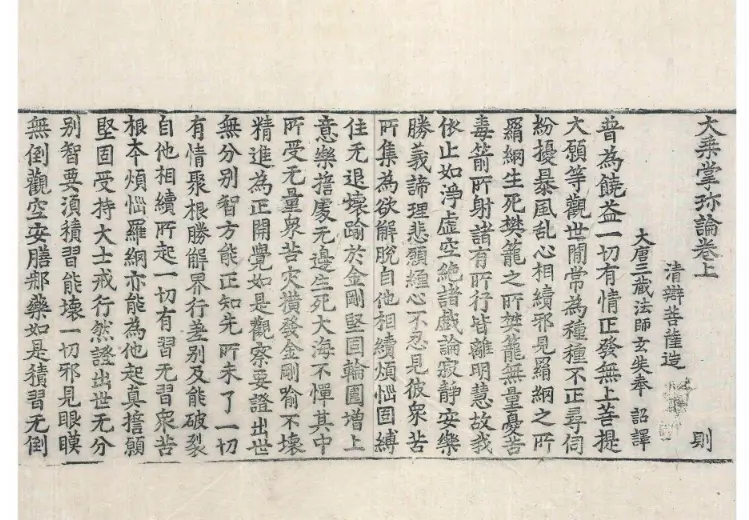 大乗掌珎論卷上　則
清辯菩薩造
大唐三藏法師玄奘奉 詔譯
普為饒益一切有情正發無上菩提
大願等觀世間常為種種不正尋伺
紛擾暴風乱心相續邪見羂網之所
羅網生死樊籠之所樊籠無量憂苦
毒箭所射諸有所行皆離明慧故我
依止如淨虛空絕諸戲論寂靜安樂
勝義諦理悲願纏心不忍見彼衆苦
所集為欲解脫自他相續煩惱固縛
住无退壞踰於金剛堅固輪圍增上
意樂擔處无邊生死大海不憚其中
所受无量衆苦灾横發金剛喻不壞
精進為正開覺如是觀察要證出世
無分別智方能正知先所未了一切
有情聚根勝解界行差別及能破裂
自他相續所起一切有習无習衆苦
根本煩惱羅網亦能為他起真擔願
堅固受持大士戒行然證出世无分
別智要湏積習能壞一切邪見眼瞙
無倒觀空安膳那藥如是積習无倒